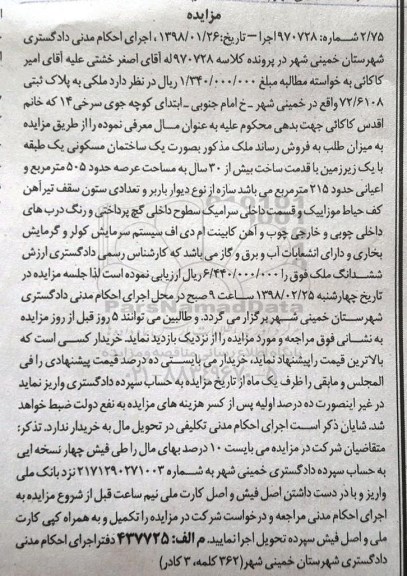 مزایده
۲/۷۵ شماره: ۹۷۰۷۲۸ اجرا – تاریخ: ۱۳۹۸/۰۱/۲۶ . اجرای احکام مدنی دادگستری
شهرستان خمینی شهر در پرونده کلاسه ۹۷۰۷۲۸ له آقای اصغر خشتی علیه آقای امیر
کاکائی به خواسته مطالبه مبلغ ۱/۳۴۰/۰۰۰/۰۰۰ ریال در نظر دارد ملکی به پلاک ثبتی
۷۲/۶۱۰۸ واقع در خمینی شهر –خ امام جنوبی –ابتدای کوچه جوی سرخی ۱۴ که خانم
اقدس کاکائی جهت بدهی محکوم علیه به عنوان مال معرفی نموده را از طریق مزایده
به میزان طلب به فروش رساند ملک مذکور بصورت یک ساختمان مسکونی یک طبقه
با یک زیرزمین با قدمت ساخت بیش از ۳۰ سال به مساحت عرصه حدود ۵۰۵ مترمربع و
اعیانی حدود ۲۱۵ مترمربع می باشد سازه از نوع دیوار باربر و تعدادی ستون سقف تیرآهن
کف حیاط موزاییک و قسمت داخلی سرامیک سطوح داخلی گچ پرداختی و رنگ درب های
داخلی چوبی و خارجی چوب و آهن کابینت ام دی اف سیستم سرمایش کولر و گرمایش
بخاری و دارای انشعابات آب و برق و گاز می باشد که کارشناس رسمی دادگستری ارزش
ششدانگ ملک فوق را ۶/۴۴۰/۰۰۰/۰۰۰ ریال ارزیابی نموده است لذا جلسه مزایده در
تاریخ چهارشنبه ۱۳۹۸/۰۲/۲۵ ساعت ۹ صبح در محل اجرای احکام مدنی دادگستری
شهرستان خمینی شهر برگزار می گردد. و طالبین می توانند ۵ روز قبل از روز مزایده
به نشانی فوق مراجعه و مورد مزایده را از نزدیک بازدید نماید. خریدار کسی است که
بالاترین قیمت را پیشنهاد نماید، خریدار می بایستی ده درصد قیمت پیشنهادی را فی
المجلس و مابقی را ظرف یک ماه از تاریخ مزایده به حساب سپرده دادگستری واریز نماید
در غیر اینصورت ده درصد اولیه پس از کسر هزینه های مزایده به نفع دولت ضبط خواهد
شد. شایان ذکر است اجرای احکام مدنی تکلیفی در تحویل مال به خریدار ندارد. تذکر:
متقاضیان شرکت در مزایده می بایست ۱۰ درصد بهای مال را طی فیش چهار نسخه ایی
به حساب سپرده دادگستری خمینی شهر به شماره ۲۱۷۱۲۹۰۲۷۱۰۰۳ نزد بانک ملی
واریز و با در دست داشتن اصل فیش و اصل کارت ملی نیم ساعت قبل از شروع مزایده به
اجرای احکام مدنی مراجعه و درخواست شرکت در مزایده را تکمیل و به همراه کپی کارت
ملی و اصل فیش سپرده تحویل اجرا نمایید. م الف: ۴۳۷۷۲۵ دفتر اجرای احکام مدنی
دادگستری شهرستان خمینی شهر (۳۶۲ کلمه، ۳ کادر)